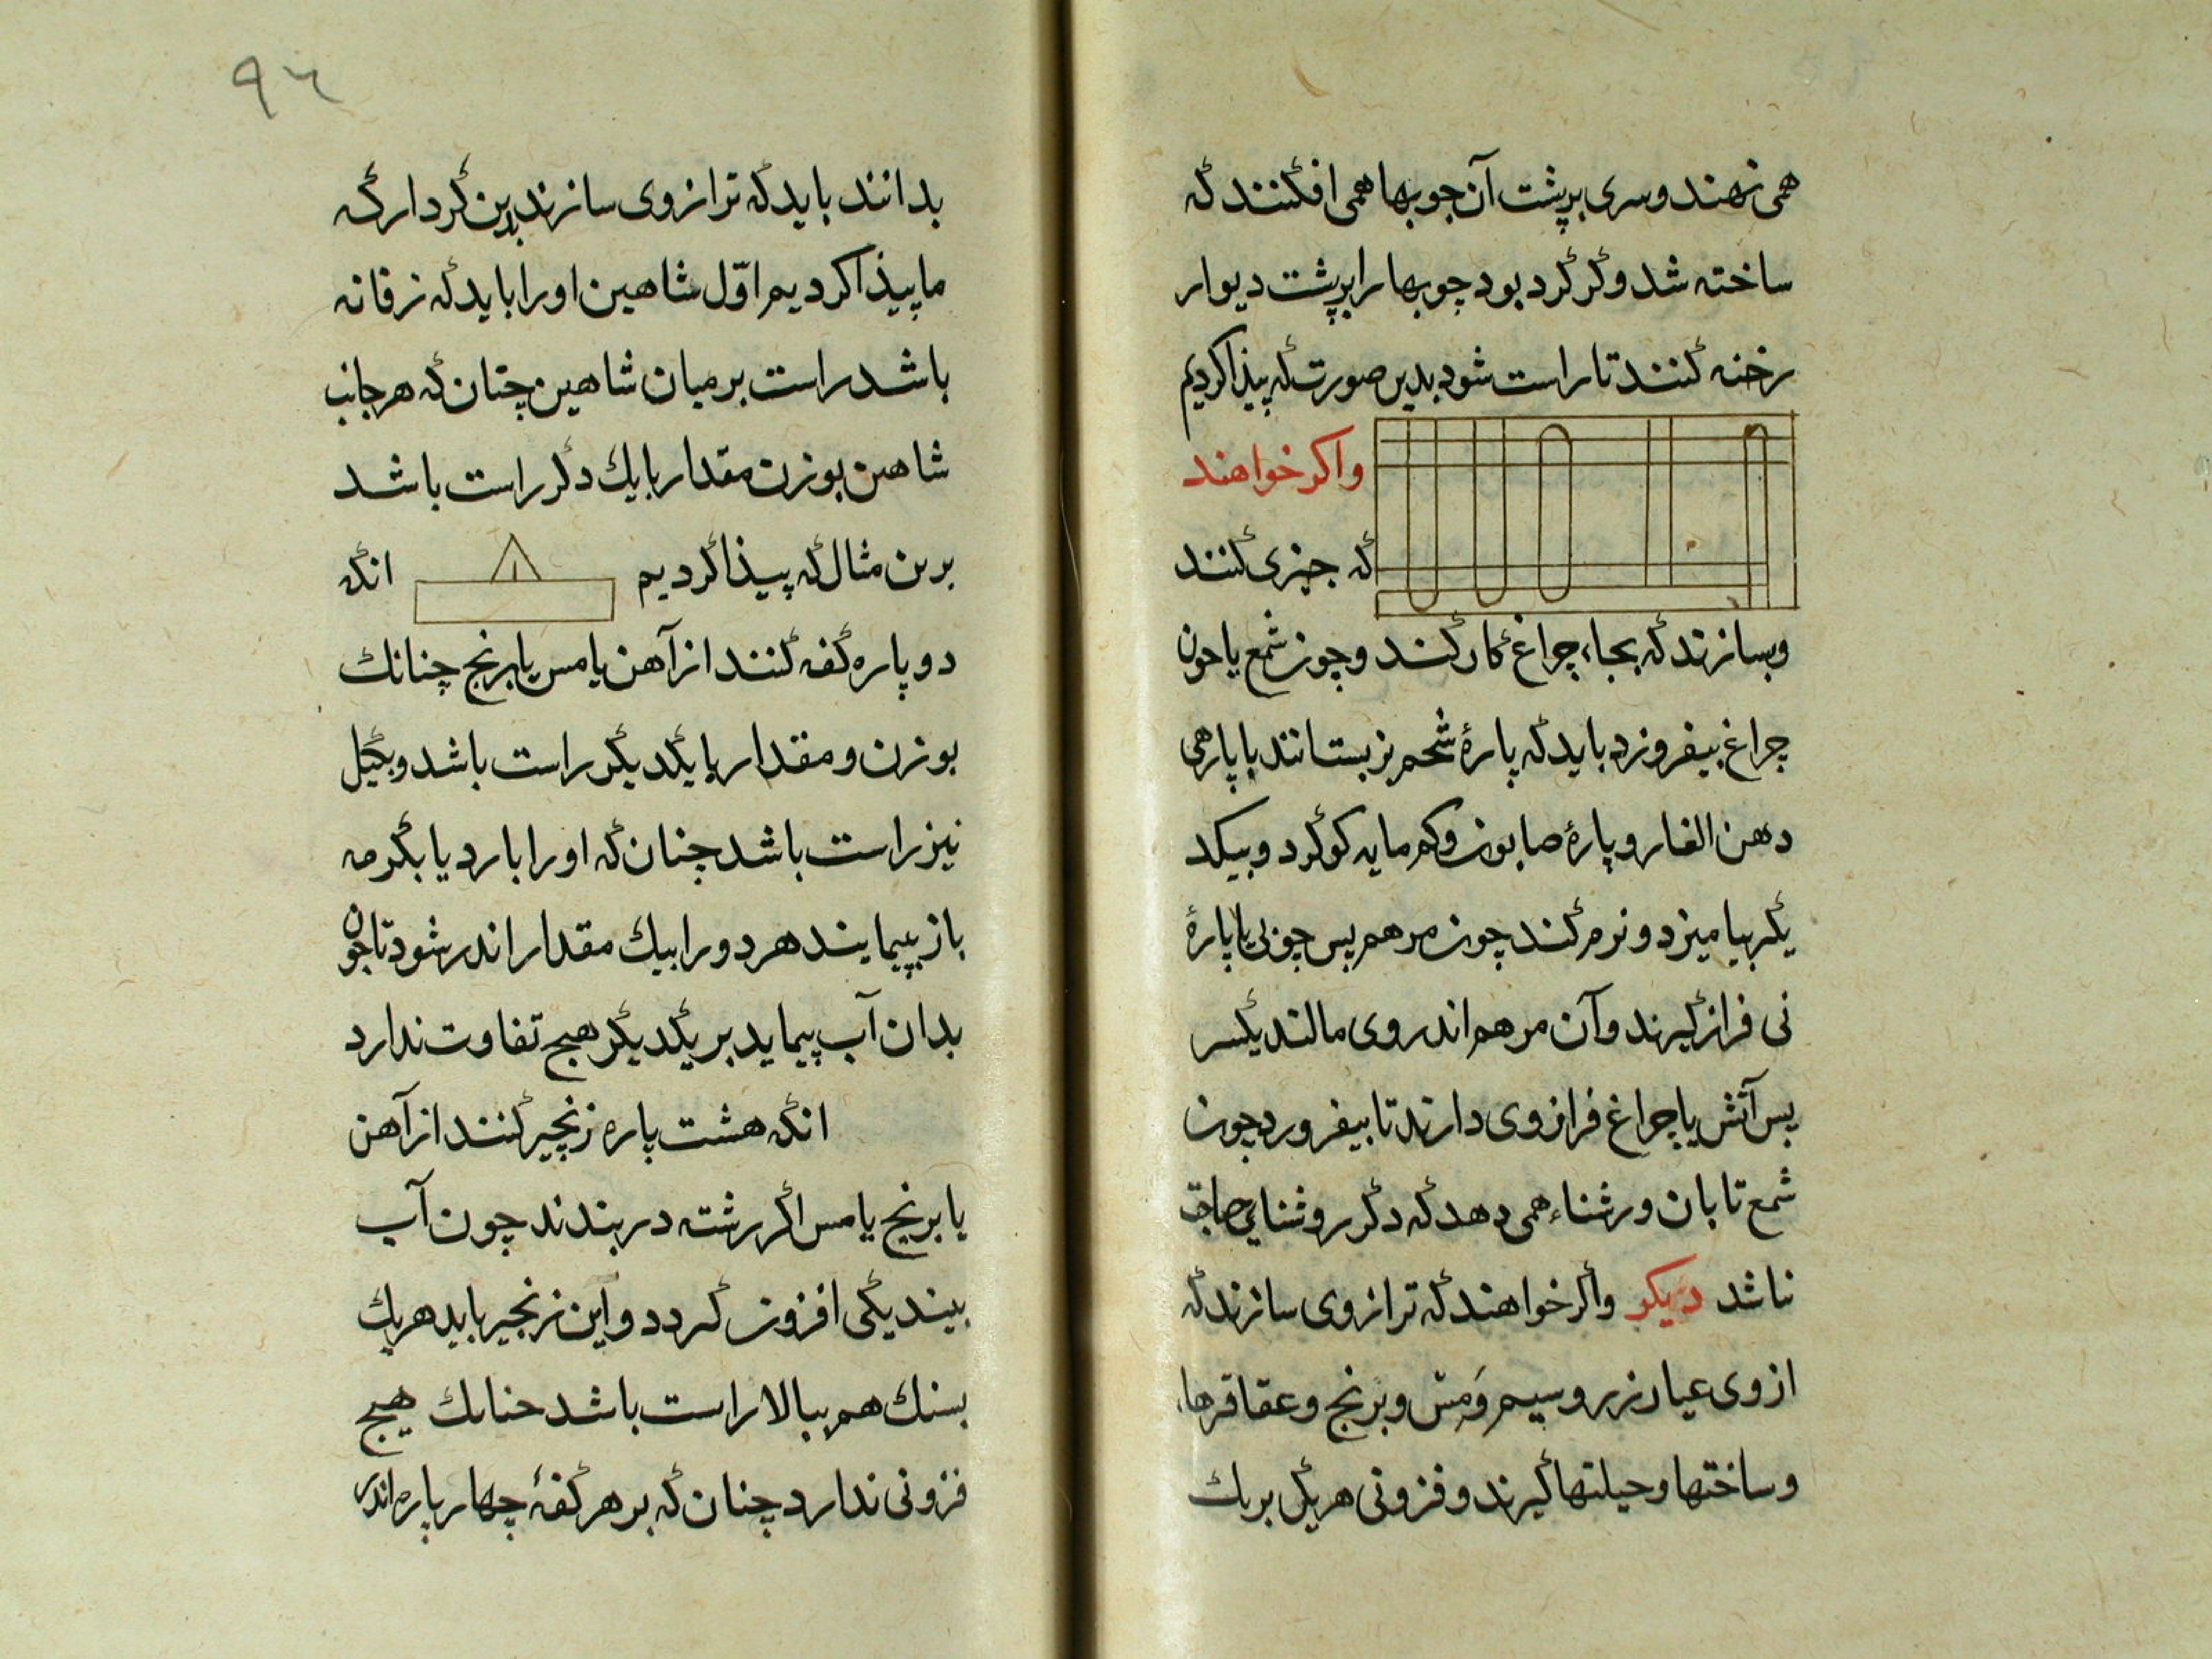 همی نهند و سری بر پشت آن جوبها همی افکنند که
ساخته شد و کر کرد بود چوبها را بر پشت دیوار
رخنه کنند تا راست شود بدین صورت که پیذا کردیم
واکر خواهند
که جیزی کنند
وبسازند که بجاء چراغ کار کند و چون شمع یا حون
چراغ بیفروزد باید که پارهٔ شحم بز بستانند با پارهی
دهن الغار و پارهٔ صابون وکم مایه کوکرد و بیکد
یکر بیامیزد و نرم کند چون مرهم پس چوبی یا پارهٔ
نی فراز کیرند و آن مرهم اندروی مالند یکسر
پس آتش یا چراغ فراز وی دارند تا بیفرورد چون
شمع تابان و رشناء همی دهد که دکر روشنایی حاجت
ناشد دیکر واکر خواهند که ترازوی سازند که
ازوی عیار زر و سیم ومس و برنج و عقاقرها
و ساختها و حیلتها کیرند و فزونی هر یکی بریک
٩٦
بدانند باید که ترازوی سازند بدین کردار که
ما پیذا کردیم اوّل شاهین او را باید که زفانه
باشد راست بر میان شاهین چنان که هر جانب
شاهین بوزن مقدار بایک دکر راست باشد
برین مثال که پیذا کردیم انکه
دو پاره کفه کنند از آهن یا مس یا برنج چنانک
بوزن و مقدار بایکدیکر راست باشد و بکیل
نیز راست باشد چنان که او را بارد یا بکرمه
باز پیمایند هر دو را بیک مقدار اندر شود تا چون
بدان آب پیماید بر یکدیکر هیچ تفاوت ندارد
انکه هشت پاره زنجیر کنند از آهن
یا برنج یا مس اکر رشته دربندند چون آب
بیند یکی افزون کردد و این زنجیر باید هریک
بسنک هم ببالا راست باشد حنانک هیچ
فزونی ندارد چنان که بر هر کفهٔ چهار پاره اندر